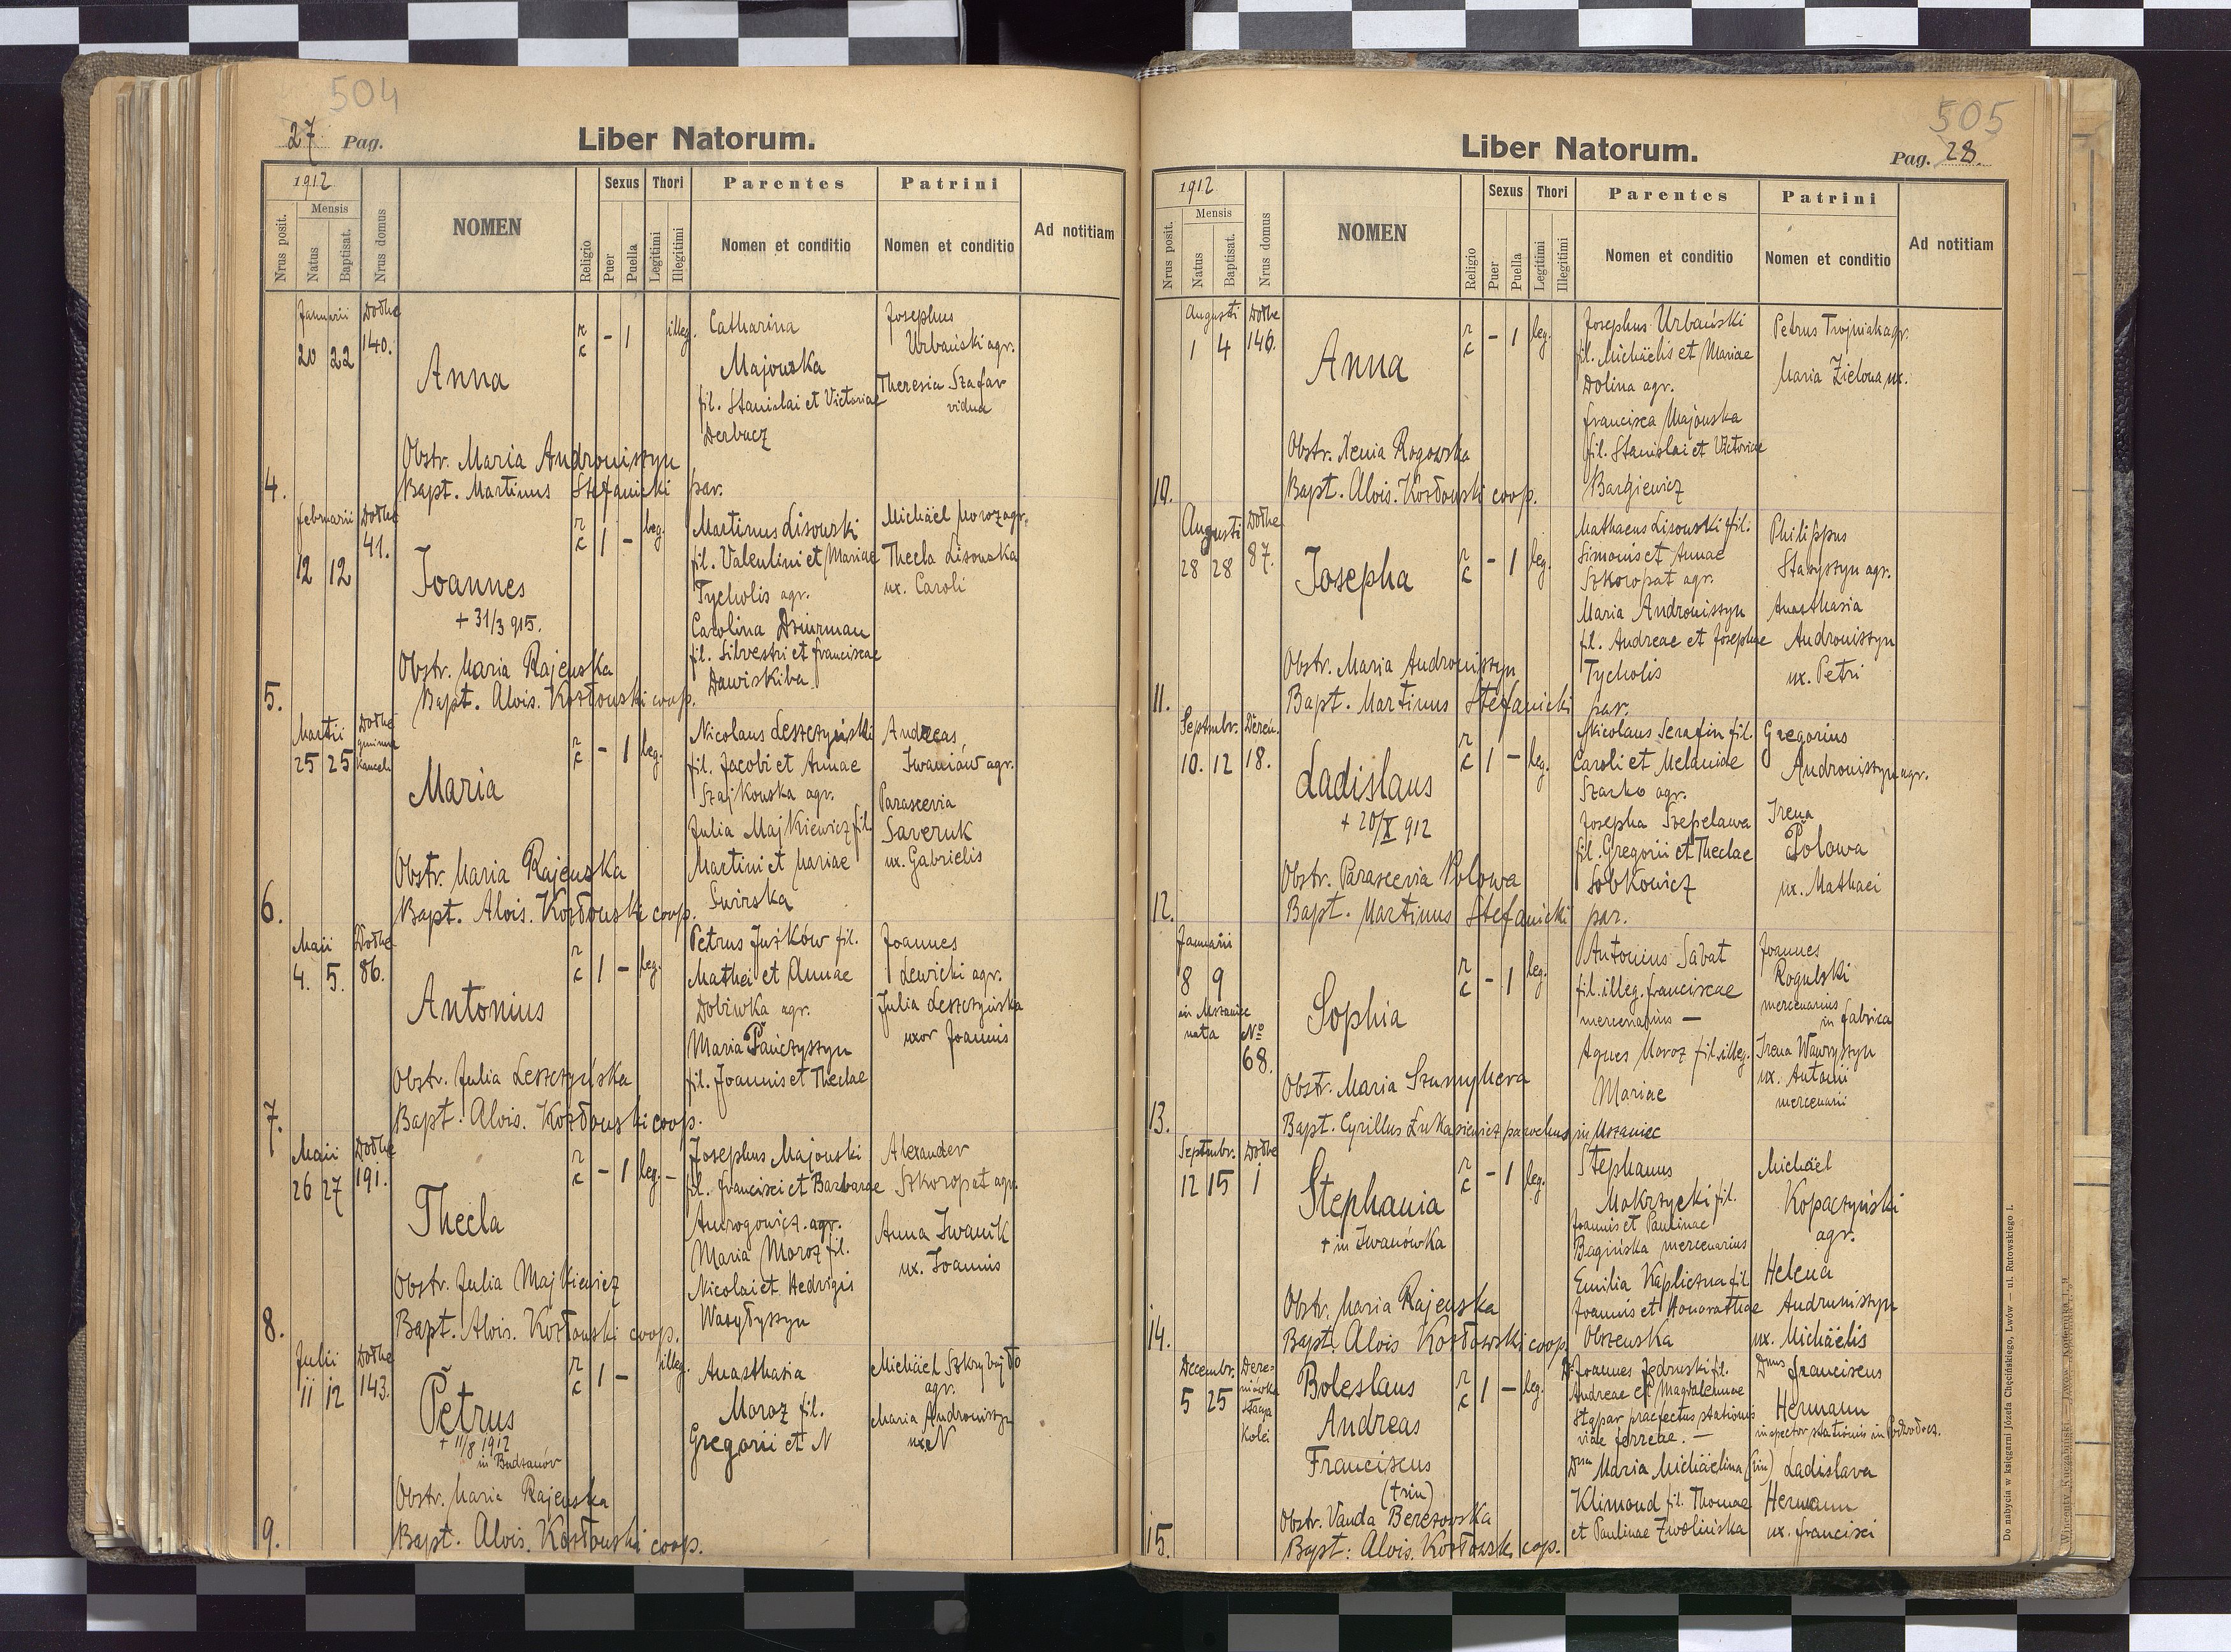 504
27 Pag.
Liber Natorum.
1912
Nrus posit.
Mensis
Natus
Baptisat.
Nrus domus
NOMEN
Religio
Sexus
Puer
Puella
Thori
Legitimi
Illegitimi
Parentes
Nomen et conditio
Patrini
Nomen et conditio
Ad notitiam
4.
Januarii
20 22
Dołhe
140.
Anna
r c - 1 illeg.
Catharina
Majowska
fil. Stanislai et Victoriae
Derbacz
Josephus
Urbański agr.
Theresia Szafar
vidua
Obstr. Maria Andronissyn
Bapt. Martinus Stefanicki par.
5.
Februarii
12 12
Dołhe
41.
Joannes
+ 31/3 915.
r c 1 - leg.
Martinus Lisowski
fil. Valentini et Mariae
Tycholis agr.
Carolina
fil. Silvestri et Franciscae
Dawiskiba
Michäel Moroz agr.
Thecla Lisowska
ux. Caroli
Obstr. Maria Rajewska
Bapt. Alois. Kozłowski coop.
6.
Martii
25 25
Dołhe
gminna
kancel.
Maria
r c - 1 leg.
Nicolaus Leszczyński
fil. Jacobi et Annae
Szajkowska agr.
Julia Majkiewicz fil.
Martini et Mariae
Świrska
Andreas
Iwaniów agr.
Parascevia
Saveruk
ux. Gabrielis
Obstr. Maria Rajewska
Bapt. Alois. Kozłowski coop.
7.
Maii
4. 5.
Dołhe
86.
Antonius
r c 1 - leg.
Petrus Juśków fil.
Mathei et Annae
Dobiwka agr.
Maria Pańczyszyn
fil. Joannis et Theclae
Joannes
Lewicki agr.
Julia Leszczyńska
uxor Joannis
Obstr. Julia Leszczyńska
Bapt. Alois. Kozłowski coop.
8.
Maii
26 27
Dołhe
191.
Thecla
r c - 1 leg. -
Josephus Majowski
fil. Francisci et Barbarae
Androgowicz. agr.
Maria Moroz fil.
Nicolai et Hedvigis
Wasyłyszyn
Alexander
Szkoropat agr.
Anna Iwanik
ux. Joannis
Obstr. Julia Majkiewicz
Bapt. Alois. Kozłowski coop.
9.
Julii
11 12
Dołhe
143.
Petrus
+ 11/8 1912
in Budzanów
r c 1 - illeg.
Anasthasia
Moroz fil.
Gregorii et N
Michäel Szkrybajło
agr.
Maria Andronissyn
ux. N
Obstr. Maria Rajewska
Bapt. Alois. Kozłowski coop.
505
Liber Natorum.
Pag. 28.
1912
Nrus posit.
Mensis
Natus
Baptisat.
Nrus domus
NOMEN
Religio
Sexus
Puer
Puella
Thori
Legitimi
Illegitimi
Parentes
Nomen et conditio
Patrini
Nomen et conditio
Ad notitiam
10.
Augusti
1 4
Dołhe
146.
Anna
r c - 1 leg.
Josephus Urbański
fil. Michäelis et Mariae
Dolina agr.
Francisca Majowska
fil. Stanislai et Victoriae
Bargiewicz
Petrus Trojniak agr.
Maria Zielona ux.
Obstr. Xenia Rogowska
Bapt. Alois. Kozłowski coop.
11.
Augusti
28 28
Dołhe
87.
Josepha
r c - 1 leg.
Mathaeus Lisowski fil.
Simonis et Annae
Szkoropat agr.
Maria Andronissyn
fil. Andreae et Josephae
Tycholis
Philippus
Staryszyn agr.
Anasthasia
Andronissyn
ux. Petri
Obstr. Maria Andronissyn
Bapt. Martinus Stefanicki par.
12.
Septmbr.
10. 12
Dereń.
18.
Ladislaus
+ 20/X 912
r c 1 - leg.
Nicolaus Serafin fil.
Caroli et Melanide
Szarko agr.
Josepha Szepelawa
fil. Gregorii et Theclae
Sobkowicz
Gregorius
Andronissyn agr.
Irena
Polowa
ux. Mathaei
Obstr. Parascevia Polowa
Bapt. Martinus Stefanicki par.
13.
Januarii
8 9
in Mszaniec
nata
No
68.
Sophia
r c - 1 leg.
Antonius Sabat
fil. illeg. Franciscae
mercenarius —
Agnes Moroz fil. illeg.
Mariae
Joannes
Rogulski
mercenarius
in fabrica
Irena Wawryszyn
ux. Antonii
mercenarii
Obstr. Maria Szumyhera
Bapt. Cyrillus Łukasiewicz parochus in Mszaniec
14.
Septmbr.
12 15
Dołhe
1
Stephania
+ in Iwanówka
r c - 1 leg.
Stephanus
Mokrzycki fil.
Joannis et Paulinae
Bagińska mercenarius
Emilia Kapliczna fil.
Joannis et Honorathae
Olszewska
Michäel
Kopaczyński
agr.
Helena
Andrunissyn
ux. Michäelis
Obstr. Maria Rajewska
Bapt. Alois Kozłowski coop.
15.
Decembr.
5 25
Dere-
niówka
stacya
kolei
Boleslaus
Andreas
Franciscus
(trin)
r c 1 - leg.
D. Joannes Jędruski fil.
Andreae et Magdalennae
Stąpar praefectus stationis
viae ferreae. —
Dna Maria Michäelina (bin)
Klimond fil. Thomae
et Paulinae Zwolińska
Dnus Franciscus
Hermann
inspector stationis in Podwołocz.
Ladislava
Hermann
ux. Francisci
Obstr. Vanda Berezowska
Bapt: Alois. Kozłowski cop.
Do nabycia w księgarni Józefa Chęcińskiego, Lwów — ul. Rutowskiego 1.